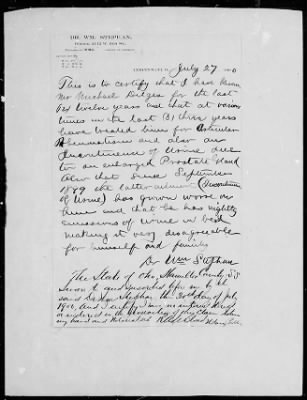 DR. WM. STEPHAN,
July 27
This is to certify that I have known
Mr Michael Dilger for the last
twelve years and that at various
times in the last (3) three years
have treated him for Articular
Rheumatism and also an
Incontinence of Urine due
to an enlarged Prostate Gland
Also that since September
1899 the latter ailment (Incontinence
of Urine) has grown worse on
him and that he has nightly
emissions of Urine in bed
making it very disagreeable
for himself and family
Dr Wm Stephan
The State of Ohio Hamilton County S.S
Sworn to and subscribed before me by
said Dr Wm Stephan the 30th day of July
1900, and I certify I have no interest direct
or indirect in the prosecution of this claim
my hand and Notarial